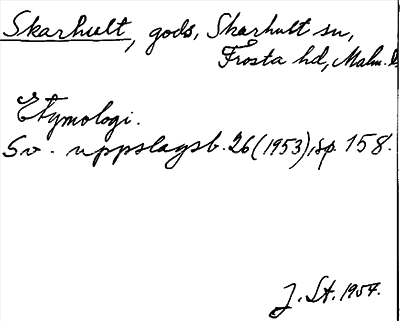 Skarhult, gods, Skarhult sn,
Frosta hd, Malm. l.
Etymologi.
Sv. uppslagsb. 26 (1953), sp. 158.
J. St. 1957.